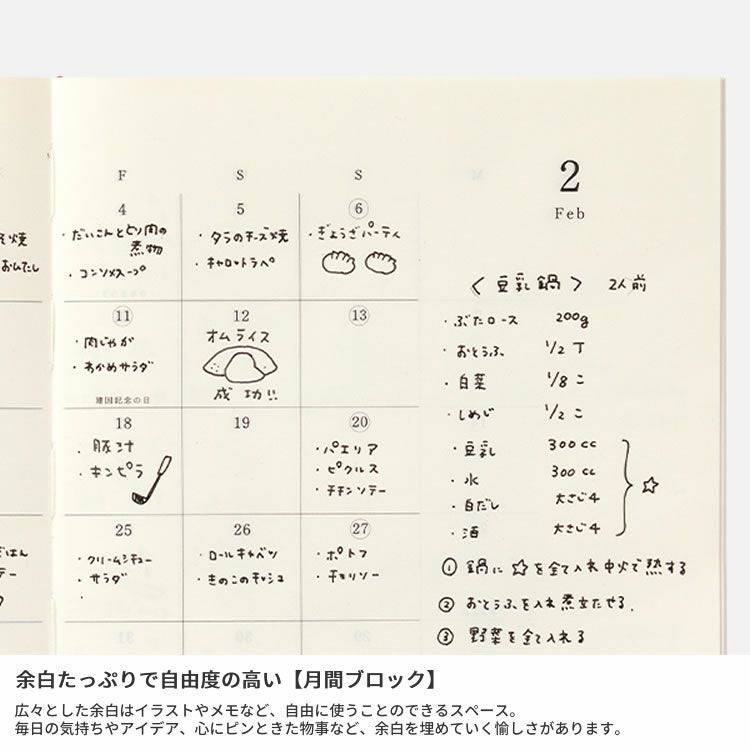 2
Feb
F
S
S
4
5
6
・だいこんとピリ肉の
煮物
・コンソメスープ
・タラのチーズ焼
・キャロットラペ
・ぎょうざパーティ
焼
おひたし
11
12
13
・肉じゃが
・わかめサラダ
建国記念の日
オムライス
成功!!
18
19
20
・豚汁
・キンピラ
・パエリア
・ピクルス
・チキンソテー
25
26
27
・クリームシチュー
・サラダ
・
・ロールキャベツ
・きのこのキッシュ
・ポトフ
・チョリソー
ごはん
テー
〈豆乳鍋〉 2人前
・ぶたロース 200g
・おとうふ 1/2丁
・白菜 1/8コ
・しめじ 1/2コ
・豆乳 300cc
・水 300cc
・白だし 大さじ4
・酒 大さじ4
☆
① 鍋に☆を全て入れ中火で熱する
② おとうふを入れ煮立たせる.
③ 野菜を全て入れる
余白たっぷりで自由度の高い【月間ブロック】
広々とした余白はイラストやメモなど、自由に使うことのできるスペース。
毎日の気持ちやアイデア、心にピンときた物事など、余白を埋めていく愉しさがあります。